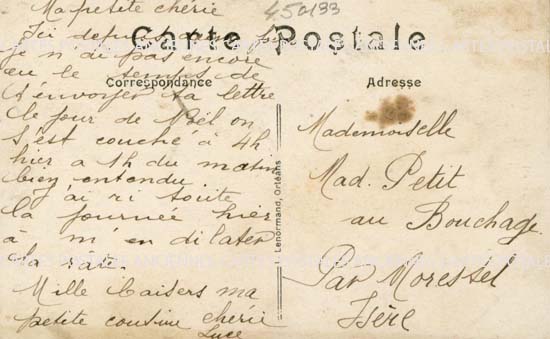 450133
Carte Postale
Correspondance
Ma petite chérie
Ici depuis
je n'ai pas encore
eu le temps de
t'envoyer ta lettre
le jour de Noël on
s'est couché à 4h
hier a 1h du matin
bien entendu
j'ai ri toute
la journée hier
à m'en dilater
la rate.
Mille baisers ma
petite cousine chérie
Luce
Lenormand, Orléans
Adresse
Mademoiselle
Mad. Petit
au Bouchage
Par Morestel
Isère